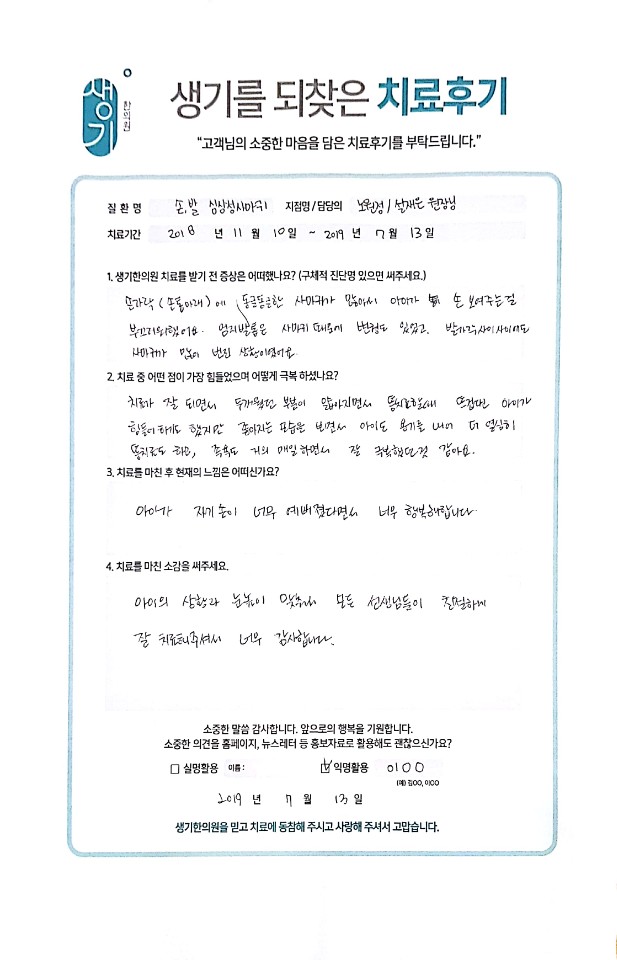 생기
한의원
생기를 되찾은 치료후기
"고객님의 소중한 마음을 담은 치료후기를 부탁드립니다."
질 환 명 손,발 심상성사마귀 지점명 / 담당의 노원점 / 원장님
치료기간 2018 년 11 월 10 일 ~ 2019 년 7 월 13 일
1. 생기한의원 치료를 받기 전 증상은 어떠했나요? (구체적 진단명 있으면 써주세요.)
손가락 (손톱아래) 에 동글동글한 사마귀가 많아서 아이가 손 보여주는걸
부끄러워했어요. 엄지발톱은 사마귀 때문에 변형도 있었고, 발가락사이사이에도
사마귀가 많이 번진 상황이었어요.
2. 치료 중 어떤 점이 가장 힘들었으며 어떻게 극복 하셨나요?
치료가 잘 되면서 두꺼웠던 부분이 얇아지면서 뜸치료할때 뜨겁다고 아이가
힘들어하기도 했지만 좋아지는 모습을 보면서 아이도 용기를 내어 더 열심히
뜸치료도 하고, 족욕도 거의 매일 하면서 잘 극복했던것 같아요.
3. 치료를 마친 후 현재의 느낌은 어떠신가요?
아이가 자기 손이 너무 예뻐졌다면서 너무 행복해합니다
4. 치료를 마친 소감을 써주세요.
아이의 상황과 눈높이 맞춰서 모든 선생님들이 친절하게
잘 치료해주셔서 너무 감사합니다.
소중한 말씀 감사합니다. 앞으로의 행복을 기원합니다.
소중한 의견을 홈페이지, 뉴스레터 등 홍보자료로 활용해도 괜찮으신가요?
실명활용 이름 : 익명활용 이OO
(예) 김OO, 이OO
2019 년 7 월 13 일
생기한의원을 믿고 치료에 동참해 주시고 사랑해 주셔서 고맙습니다.